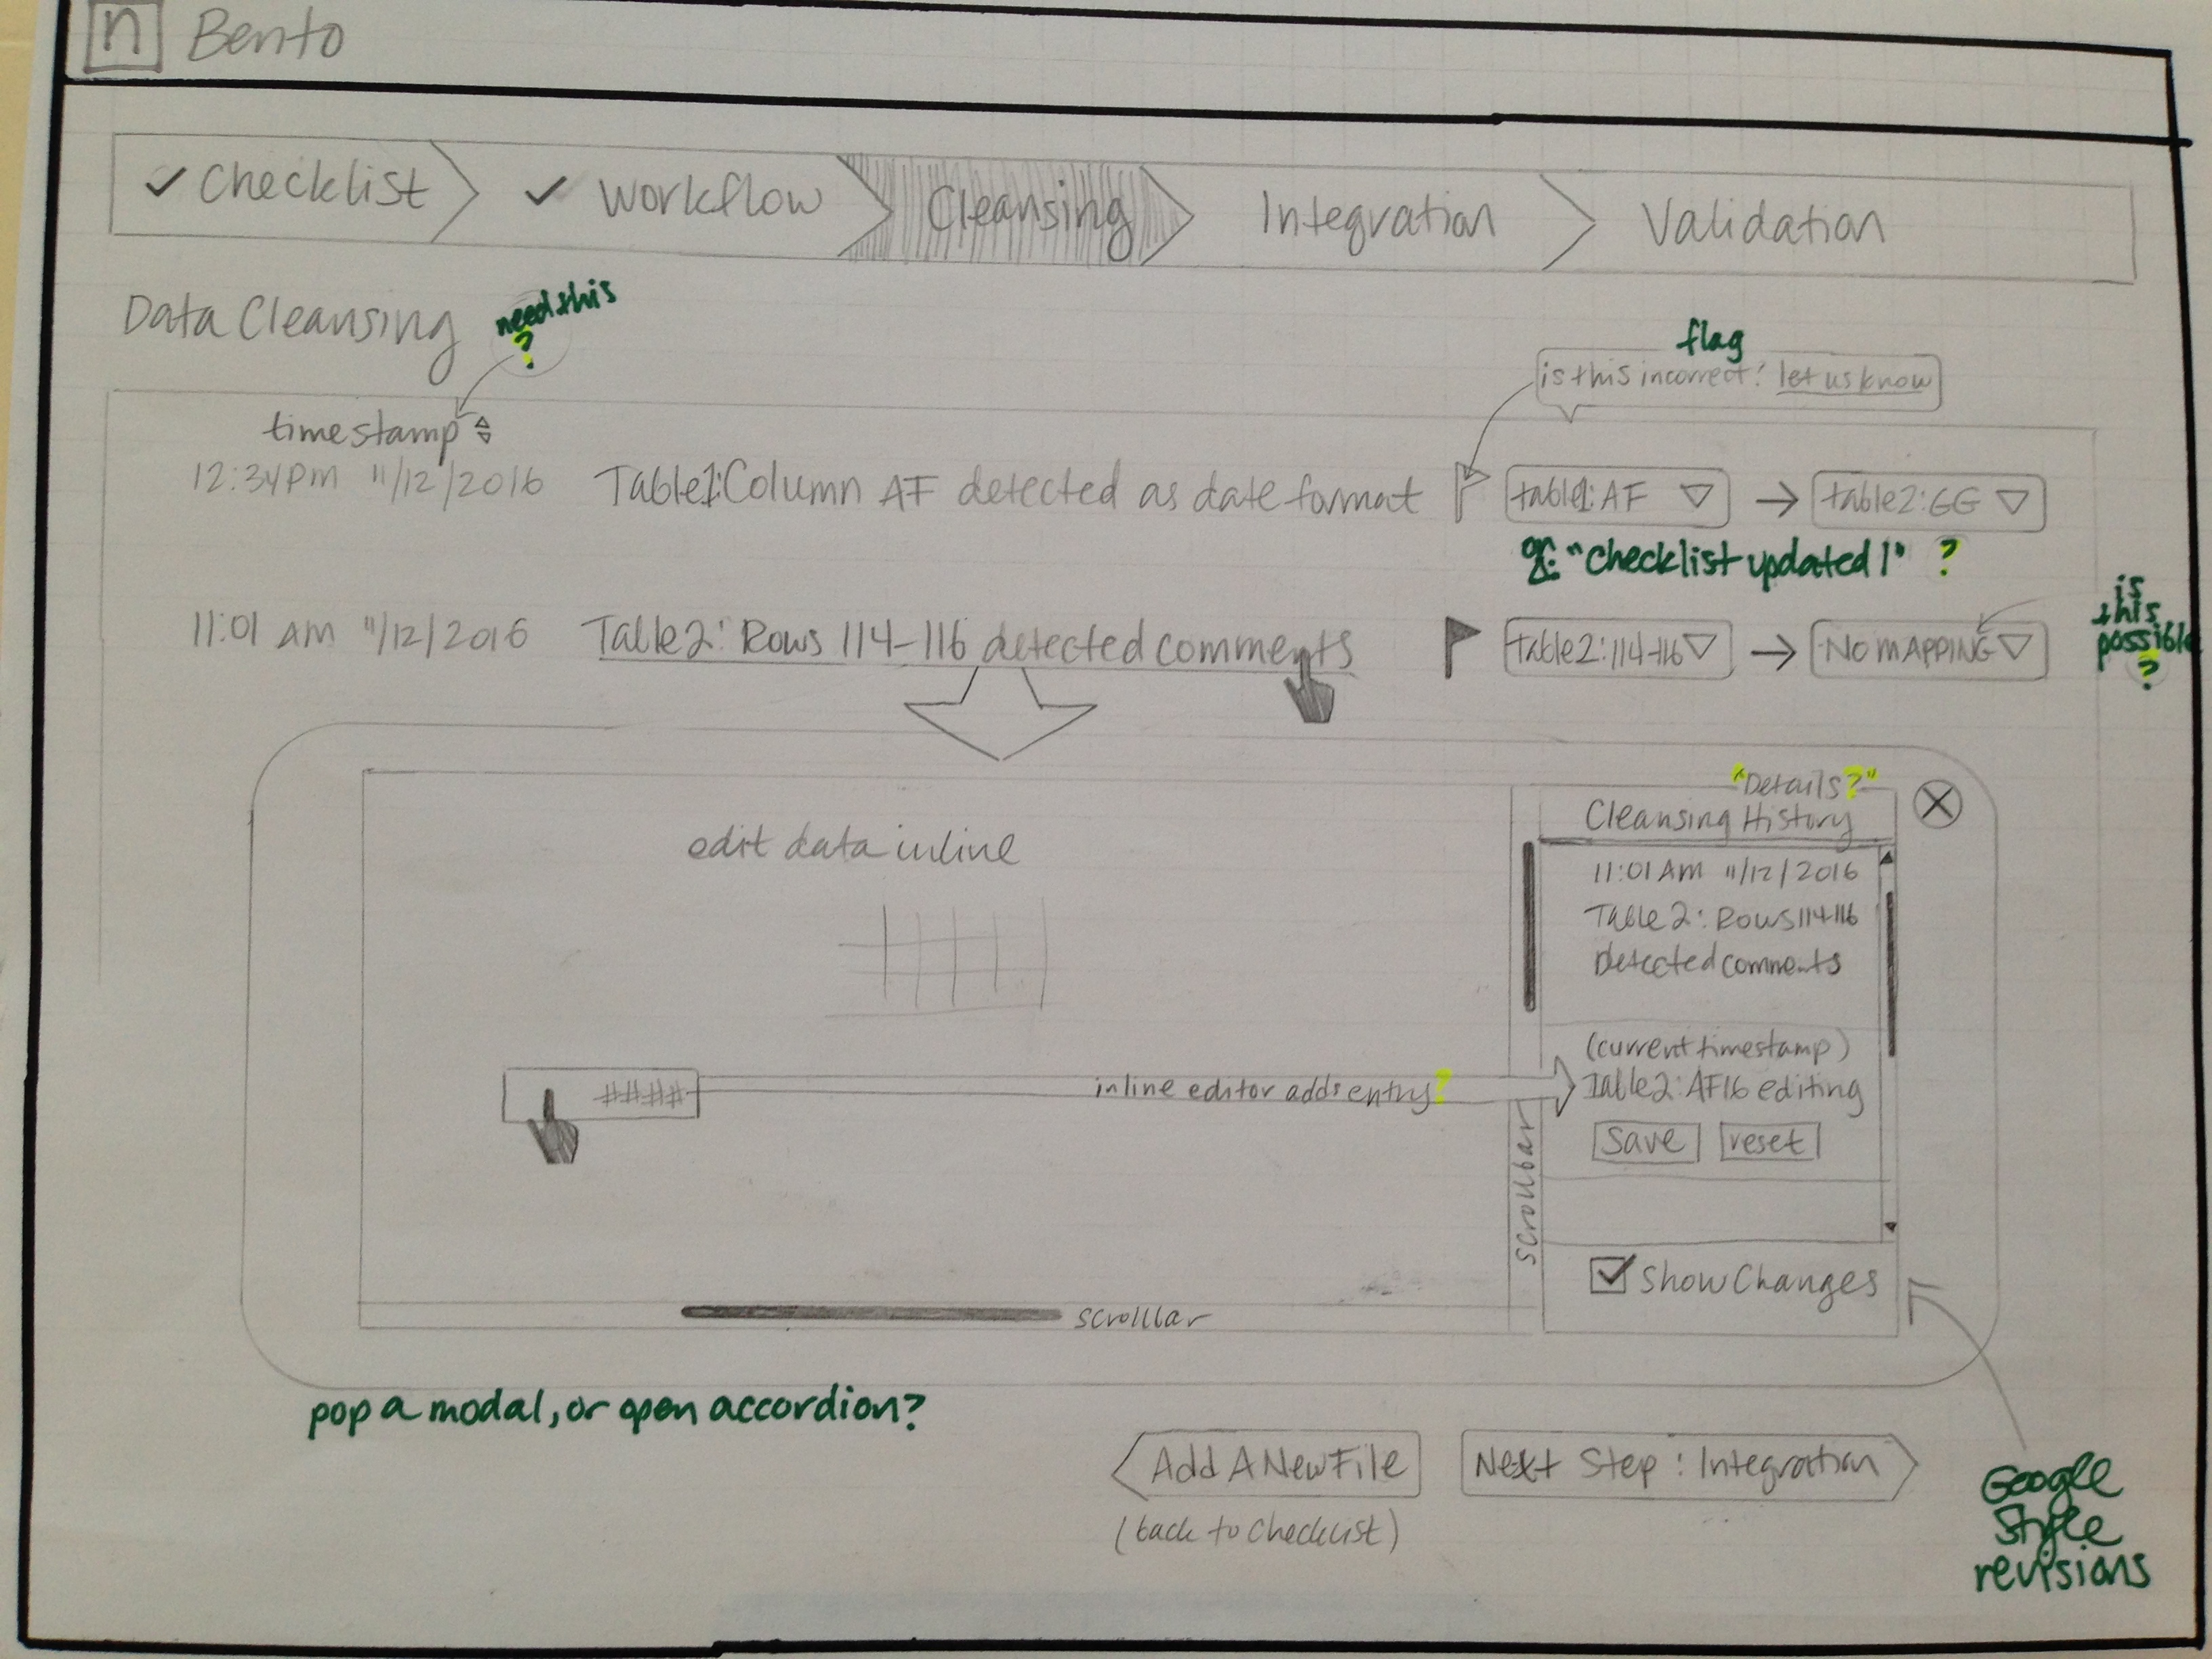 n Bento
✓ Checklist ✓ Workflow Cleansing Integration Validation
Data Cleansing
need this
?
flag
is this incorrect? let us know
timestamp
12:34PM 11/12/2016 Table1:Column AF detected as date format table1:AF → table2:GG
or: "Checklist updated!" ?
is
this
possible
?
11:01 AM 11/12/2016 Table2: Rows 114-116 detected comments table2:114-116 → NO MAPPING
"Details?"
Cleansing History
edit data inline
11:01 AM 11/12/2016
Table2: Rows 114-116
Detected comments
(current timestamp)
#### inline editor adds entry? Table2: AF16 editing
save reset
scrollbar
Show Changes
scrollbar
pop a modal, or open accordion?
Add A New File Next Step: Integration
(back to Checklist)
Google
Style
revisions